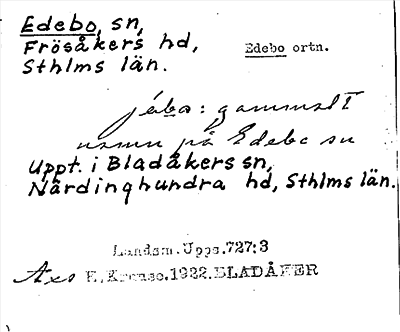 Edebo, sn,
Frösåkers hd,
Sthlms län.
Edebo ortn.
gammalt
namn på Edebo sn
Uppt. i Bladåkers sn,
Närdinghundra hd, Sthlms län.
Landsm. Upps. 727:3
Axs E. Krense. 1922. BLADÅKER